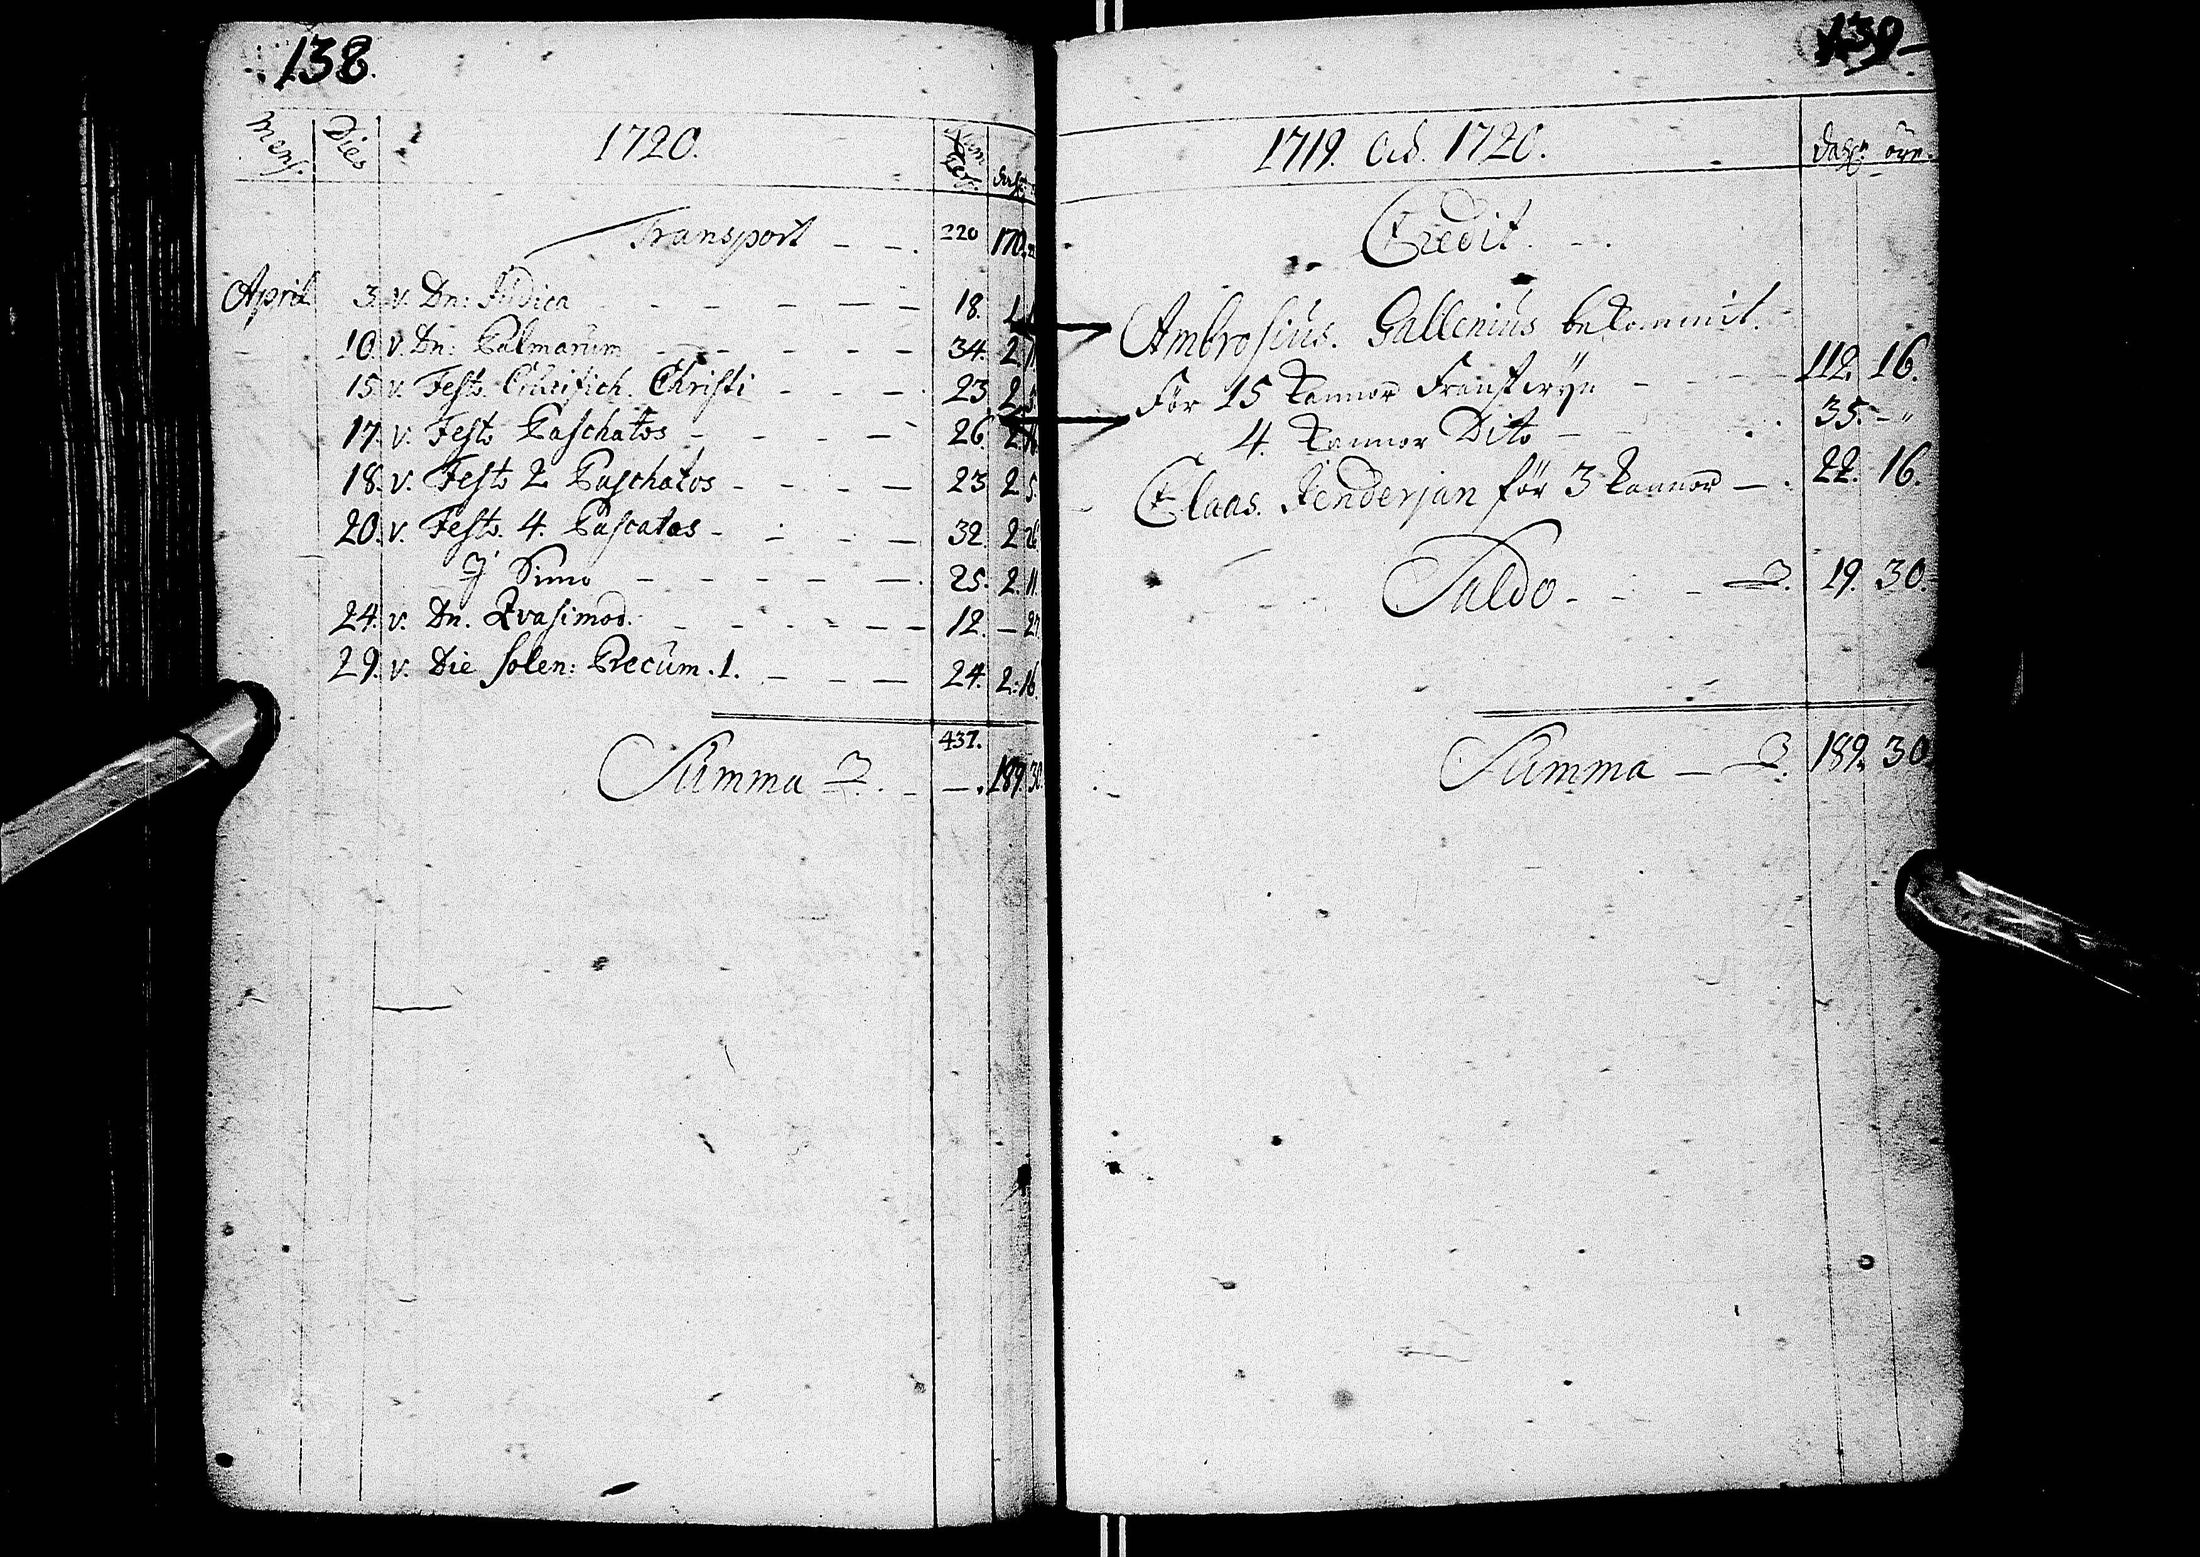 138.
Mens. Dies 1720. dahr
Transport - - . 220 170. 22
April 3. v. Dn: Judica - - - - - 18. 1.
10. v. Dn: Palmarum - - - - - 34. 2.
15. v. Festo Crucifich. Christi - - - 23 2. 5.
17. v. Festo Paschatos - - - - 26. 2.
18. v. Festo 2 Paschatos - - - - 23 2. 5.
20. v. Festo. 4. Pascatos - - - - 32. 2. 26.
Simo - - - - - 25. 2. 11.
24. v. Dn. Qvasimod. - - - - - - 12. - 27
29. v. Die solen: Precum. 1. - - - 24. 2. 16.
437.
Summa - - . 189. 30.
139.
1719. Ad. 1720. dahr: öre.
Credit. - .
Ambrosius. Gallenius bekommit.
För 15 kannor Franskvyn - - - - 112. 16.
4. kannor Dito - - - . 35. - "
Claas. Henderjan för 3 kannor - . 22. 16.
Saldo - - - 19. 30.
Summa - 189. 30